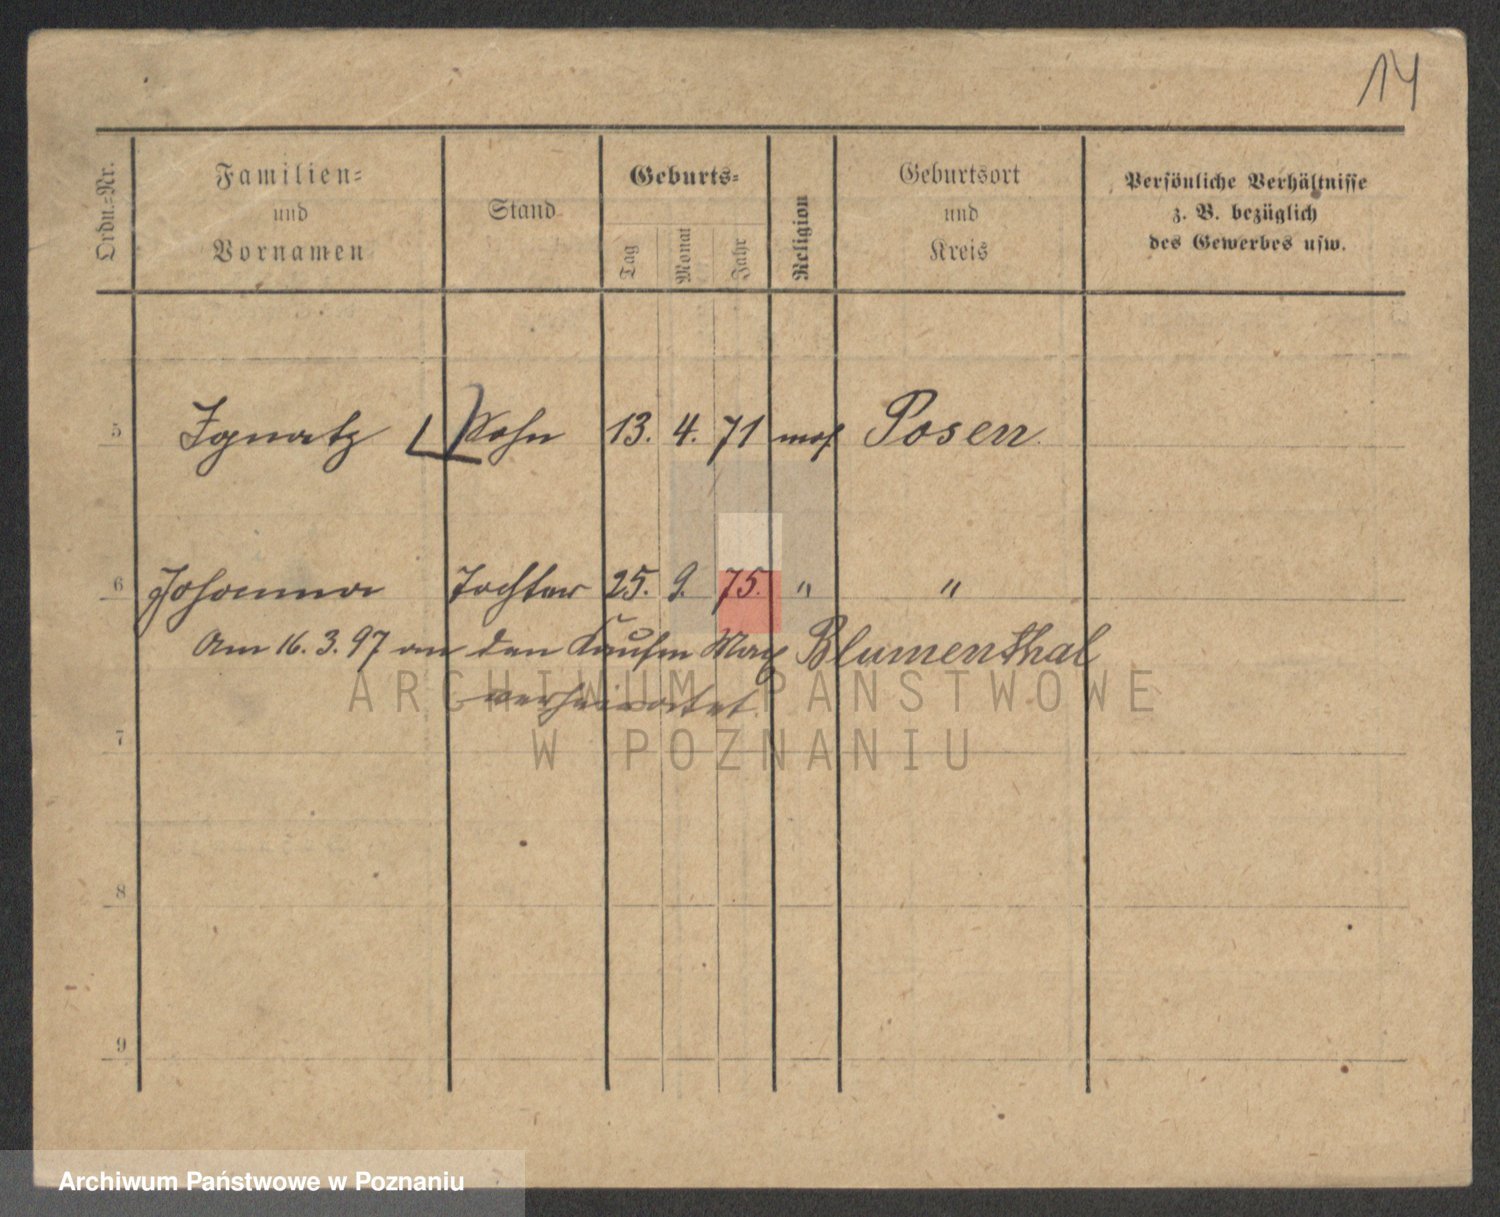 14
Ordn.-Nr. Familien- und Vornamen Stand Geburts- Tag Monat Jahr Religion Geburtsort und Kreis Persönliche Verhältnisse z. B. bezüglich des Gewerbes usw.
5 Ignatz Sohn 13. 4. 71 mos. Posen.
6 Johanna Tochter 25. 9. 75. " "
Am 16. 3. 97 an den Kaufm Max Blumenthal
verheiratet.
7
8
9
ARCHIWUM PAŃSTWOWE
W POZNANIU
Archiwum Państwowe w Poznaniu